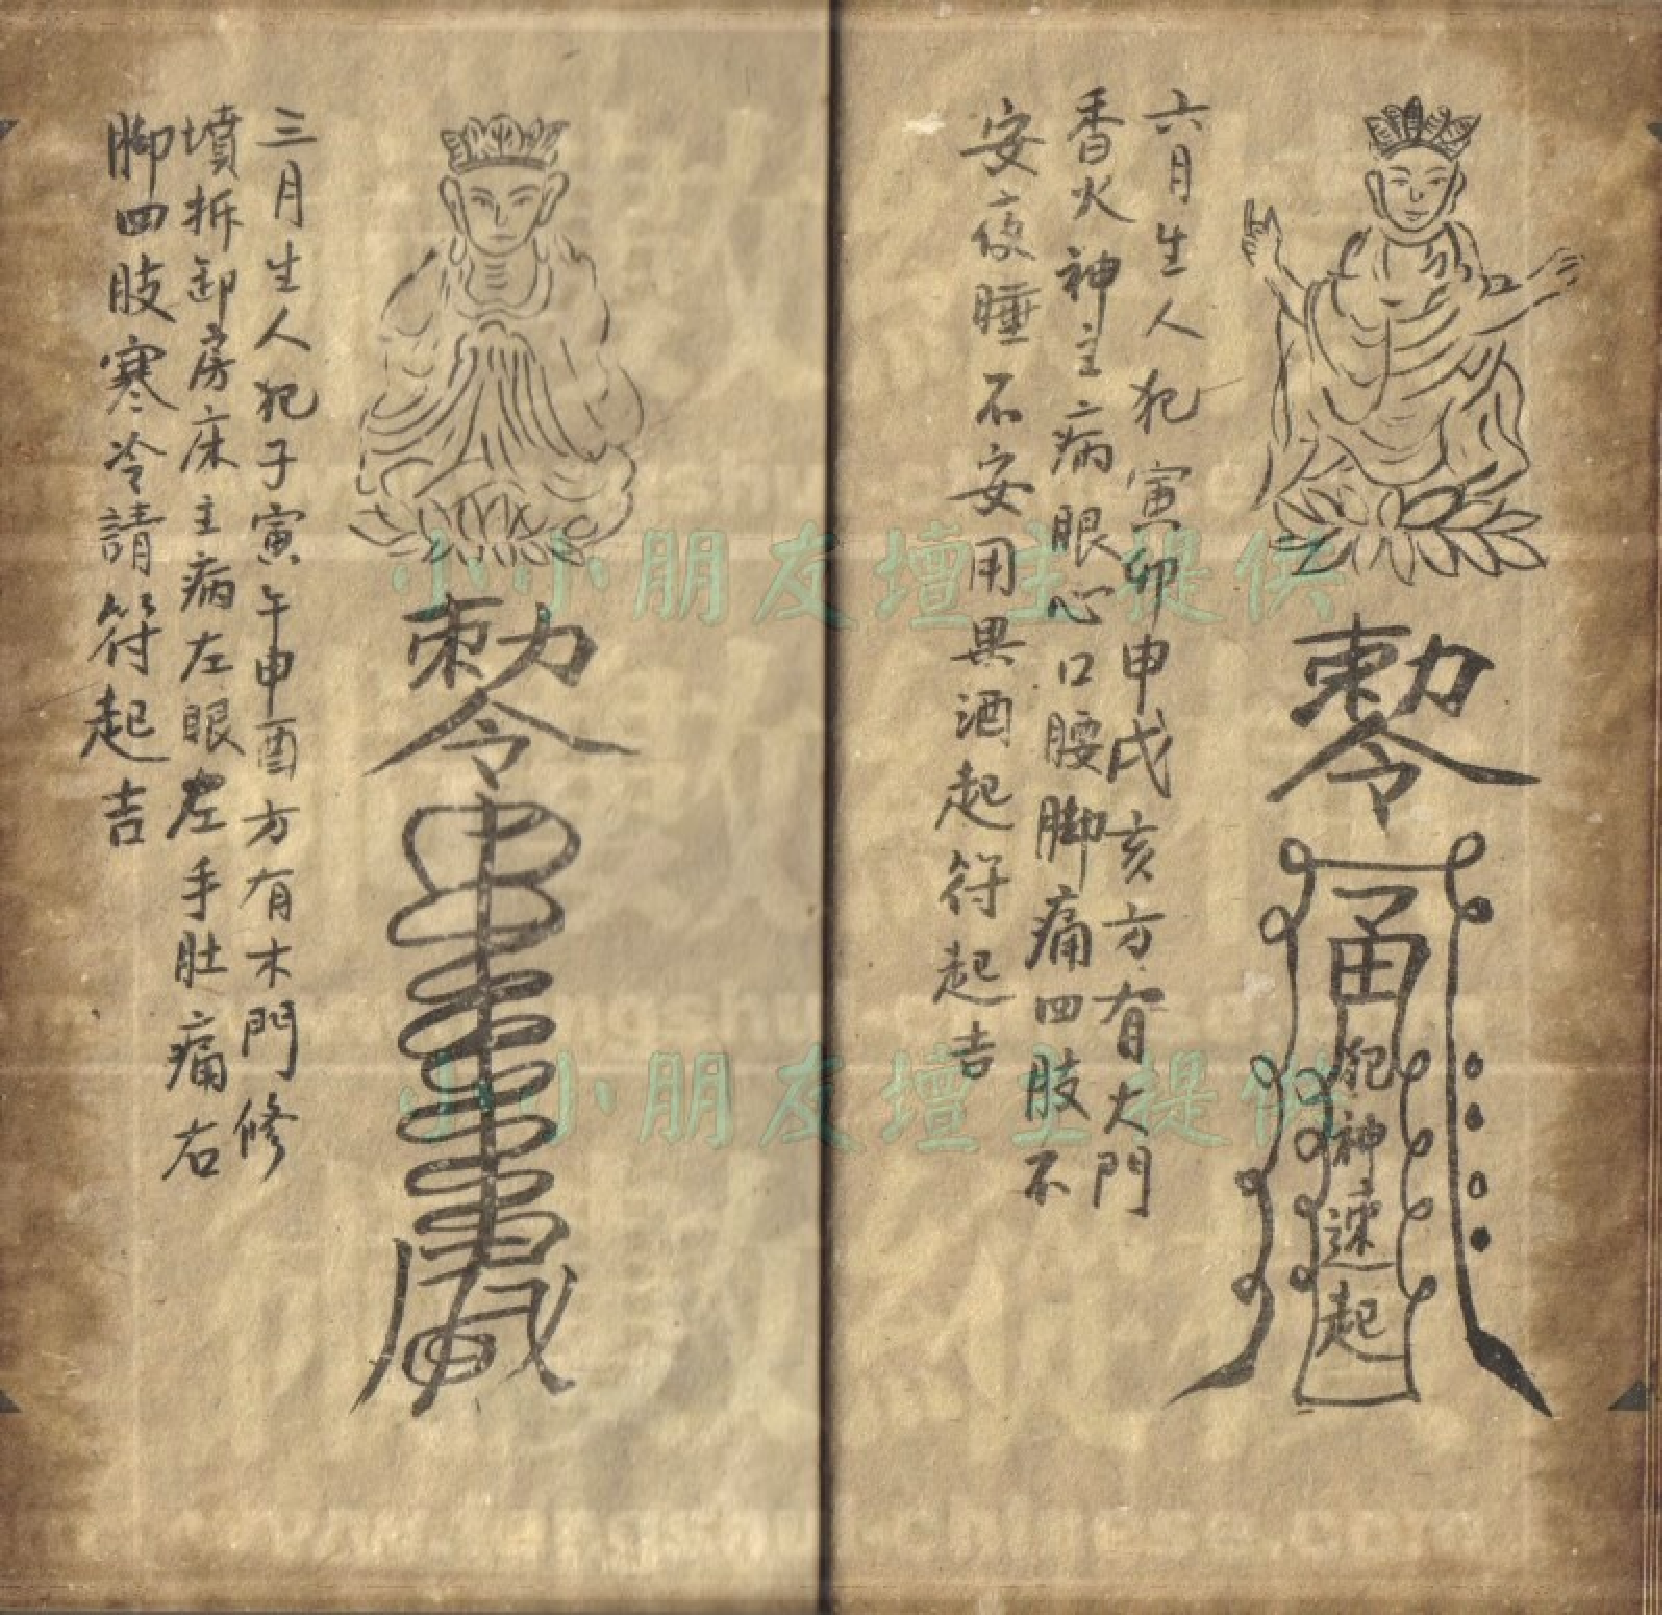 六月生人犯寅卯申戌亥方有大門
香火神主病眼心口腰脚痛四肢不
安夜睡不安用果酒起符起吉
勅令
犯神速起
三月生人犯子寅午申酉方有木門修
墳拆卸房床主病左眼左手肚痛右
脚四肢寒冷請符起吉
勅令
小小朋友壇主提供
小小朋友壇主提供